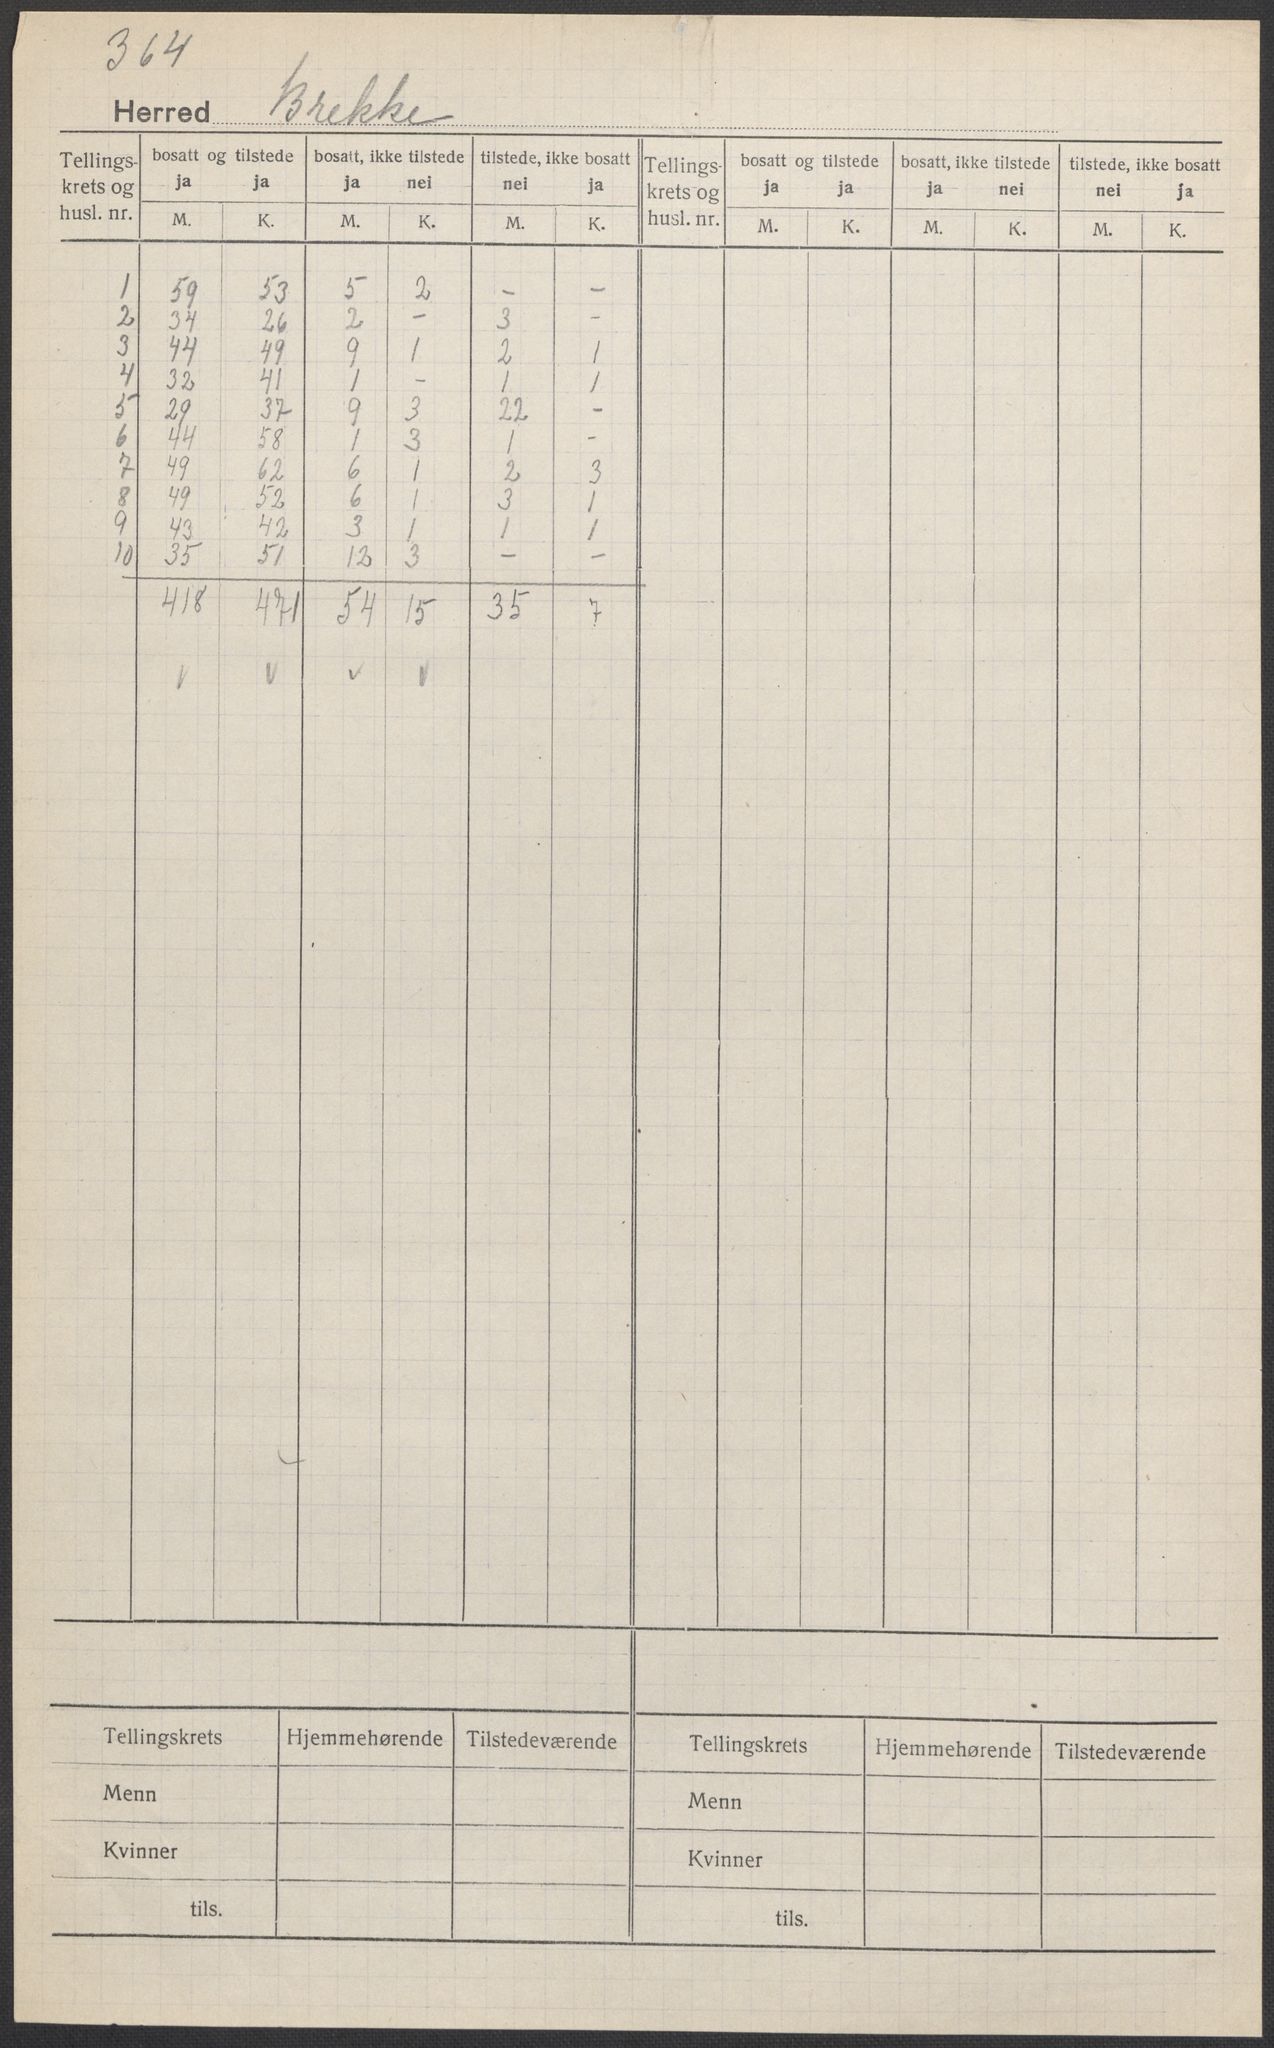 364
Herred Brekke
Tellings- krets og husl. nr. bosatt og tilstede bosatt, ikke tilstede tilstede, ikke bosatt Tellings- krets og husl. nr. bosatt og tilstede bosatt, ikke tilstede tilstede, ikke bosatt
ja ja ja nei nei ja ja ja ja nei nei ja
M. K. M. K. M. K. M. K. M. K. M. K.
1 59 53 5 2 – –
2 34 26 2 – 3 –
3 44 49 9 1 2 1
4 32 41 1 – 1 1
5 29 37 9 3 22 –
6 44 58 1 3 1 –
7 49 62 6 1 2 3
8 49 52 6 1 3 1
9 43 42 3 1 1 1
10 35 51 12 3 – –
418 471 54 15 35 7
v v v v
Tellingskrets Hjemmehørende Tilstedeværende Tellingskrets Hjemmehørende Tilstedeværende
Menn Menn
Kvinner Kvinner
tils. tils.